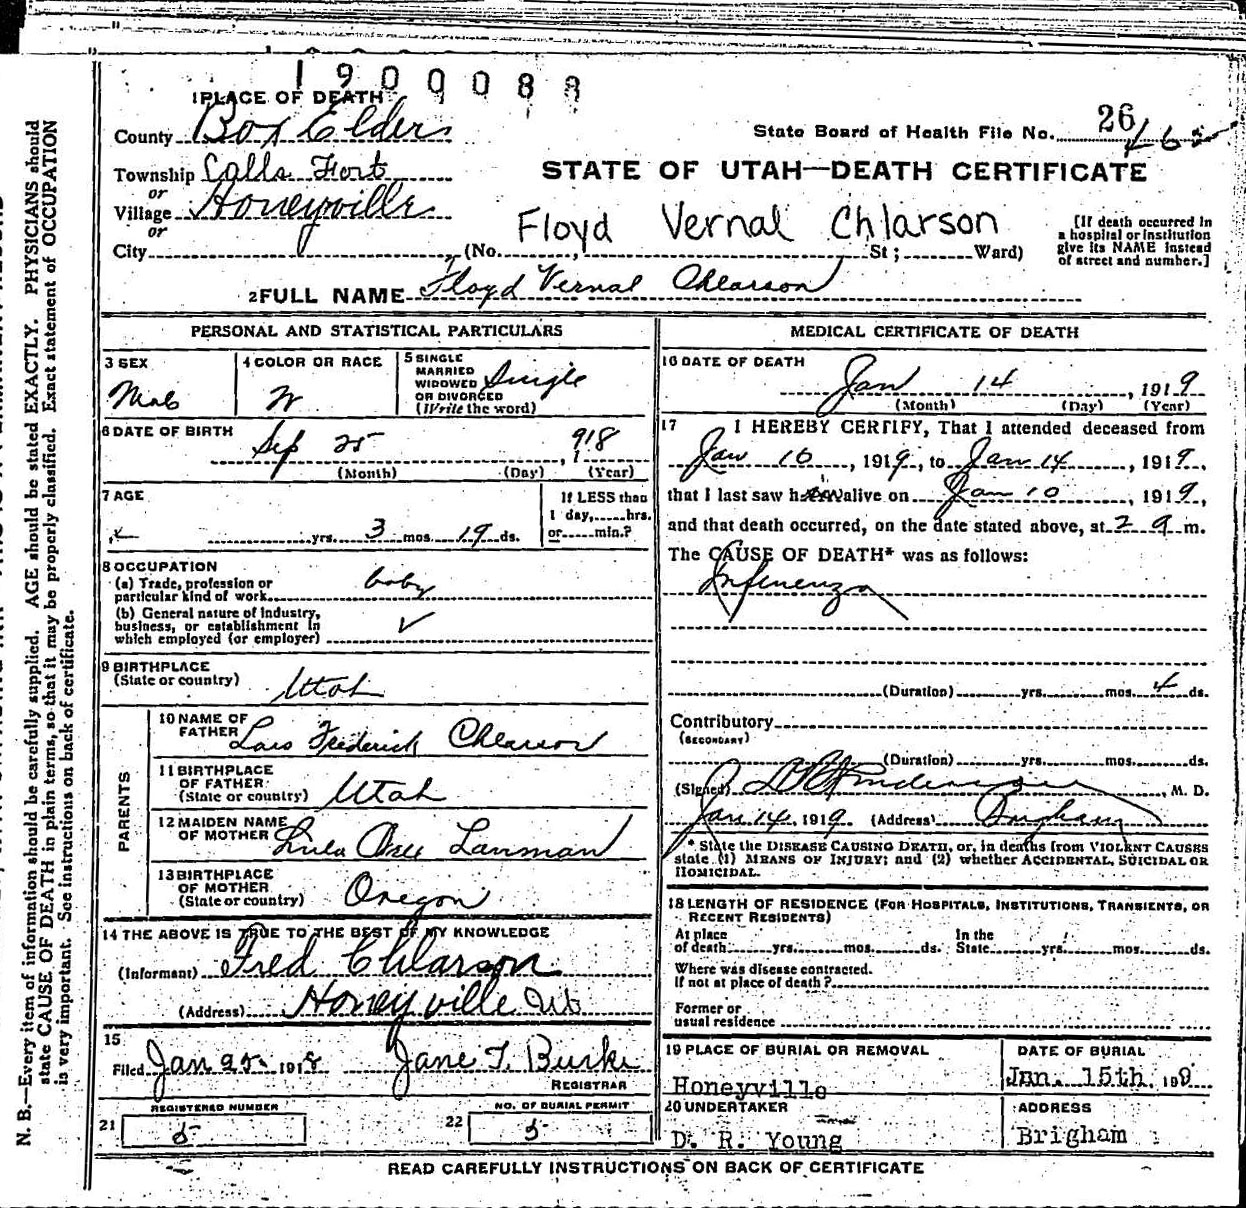 1900088
1 PLACE OF DEATH
County Box Elder
State Board of Health File No. 26
Township Calls Fort
STATE OF UTAH—DEATH CERTIFICATE
or
Village Honeyville
or
City
Floyd Vernal Chlarson
(No. St; Ward)
[If death occurred in
a hospital or institution
give its NAME instead
of street and number.]
2 FULL NAME Floyd Vernal Chlarson
PERSONAL AND STATISTICAL PARTICULARS
3 SEX
Male
4 COLOR OR RACE
W
5 SINGLE
MARRIED
WIDOWED
OR DIVORCED
(Write the word)
Single
6 DATE OF BIRTH
Sep 25, 1918
(Month) (Day) (Year)
7 AGE
yrs. 3 mos. 19 ds.
If LESS than
1 day, hrs.
or min.?
8 OCCUPATION
(a) Trade, profession or
particular kind of work baby
(b) General nature of industry,
business, or establishment in
which employed (or employer)
9 BIRTHPLACE
(State or country) Utah
PARENTS
10 NAME OF
FATHER Lars Frederick Chlarson
11 BIRTHPLACE
OF FATHER
(State or country) Utah
12 MAIDEN NAME
OF MOTHER Lanman
13 BIRTHPLACE
OF MOTHER
(State or country) Oregon
14 THE ABOVE IS TRUE TO THE BEST OF MY KNOWLEDGE
(Informant) Fred Chlarson
(Address) Honeyville Ut
15
Filed Jan 25 1918 Jane T. Burke
REGISTRAR
REGISTERED NUMBER
21 5
NO. OF BURIAL PERMIT
22 5
MEDICAL CERTIFICATE OF DEATH
16 DATE OF DEATH
Jan 14, 1919
(Month) (Day) (Year)
17 I HEREBY CERTIFY, That I attended deceased from
Jan 10, 1919, to Jan 14, 1919,
that I last saw him alive on Jan 10, 1919,
and that death occurred, on the date stated above, at 2 a m.
The CAUSE OF DEATH* was as follows:
Infuenza
(Duration) yrs. mos. 4 ds.
Contributory
(SECONDARY)
(Duration) yrs. mos. ds.
(Signed) , M. D.
Jan 14, 1919 (Address) Brigham
* State the DISEASE CAUSING DEATH, or, in deaths from VIOLENT CAUSES
state (1) MEANS OF INJURY; and (2) whether ACCIDENTAL, SUICIDAL OR
HOMICIDAL.
18 LENGTH OF RESIDENCE (FOR HOSPITALS, INSTITUTIONS, TRANSIENTS, OR
RECENT RESIDENTS)
At place
of death yrs. mos. ds.
In the
State yrs. mos. ds.
Where was disease contracted.
If not at place of death?
Former or
usual residence
19 PLACE OF BURIAL OR REMOVAL
Honeyville
DATE OF BURIAL
Jan. 15th, 199
20 UNDERTAKER
D. R. Young
ADDRESS
Brigham
READ CAREFULLY INSTRUCTIONS ON BACK OF CERTIFICATE
N. B.—Every item of information should be carefully supplied. AGE should be stated EXACTLY. PHYSICIANS should
state CAUSE OF DEATH in plain terms, so that it may be properly classified. Exact statement of OCCUPATION
is very important. See instructions on back of certificate.